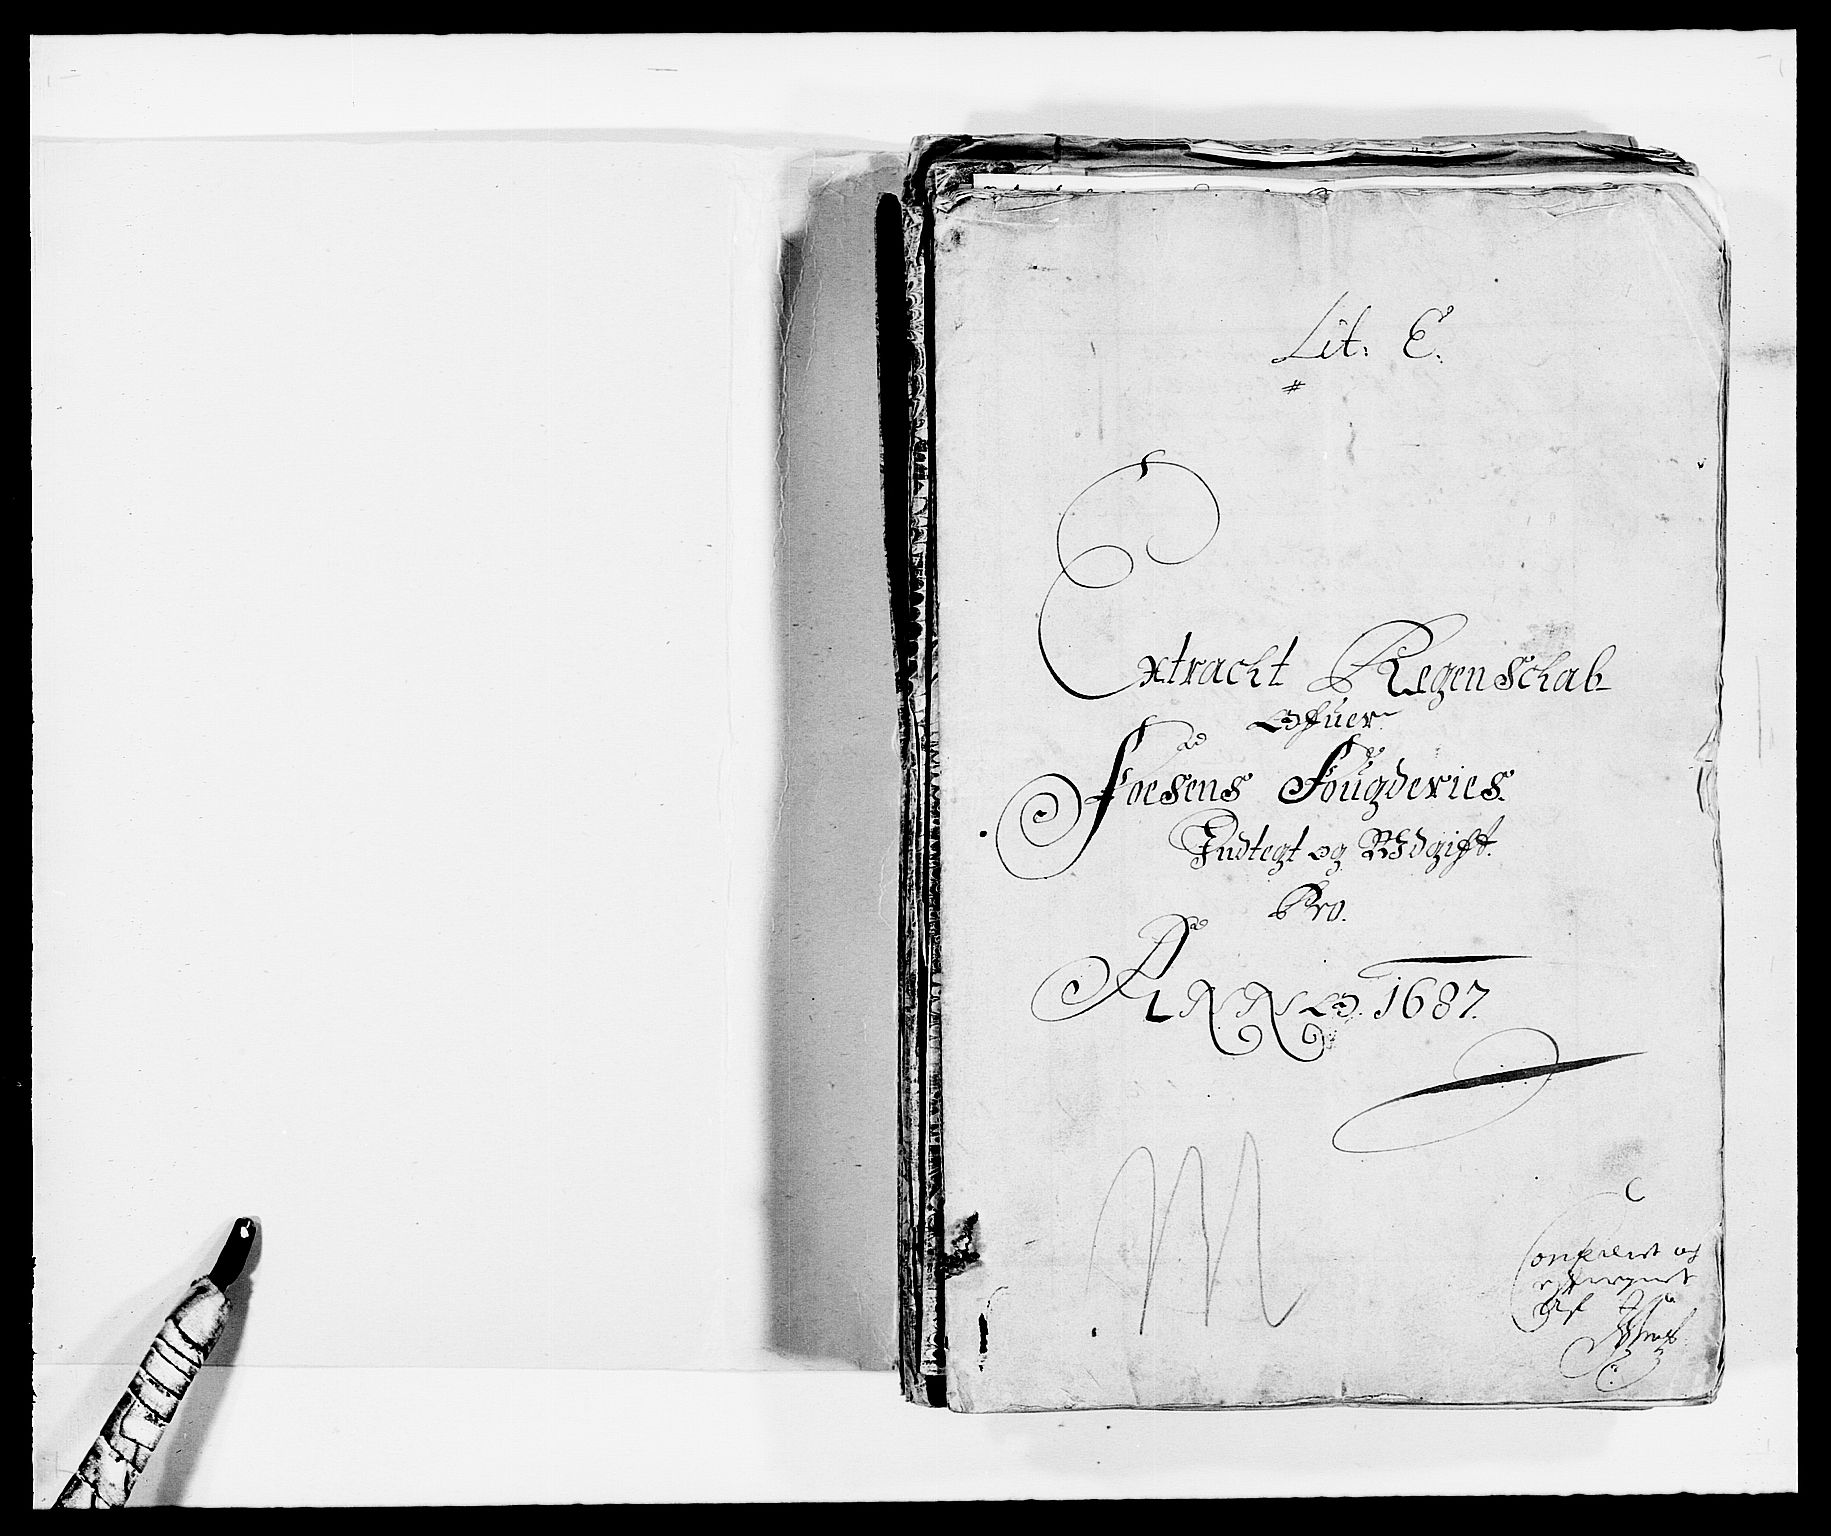 Lit: E.
#
Extracht Regenschab
Offuer
Foesens Fougderies
Indtegt og Vdgifft.
Pro.
ANNO. 1687.
M
Confererit og
af